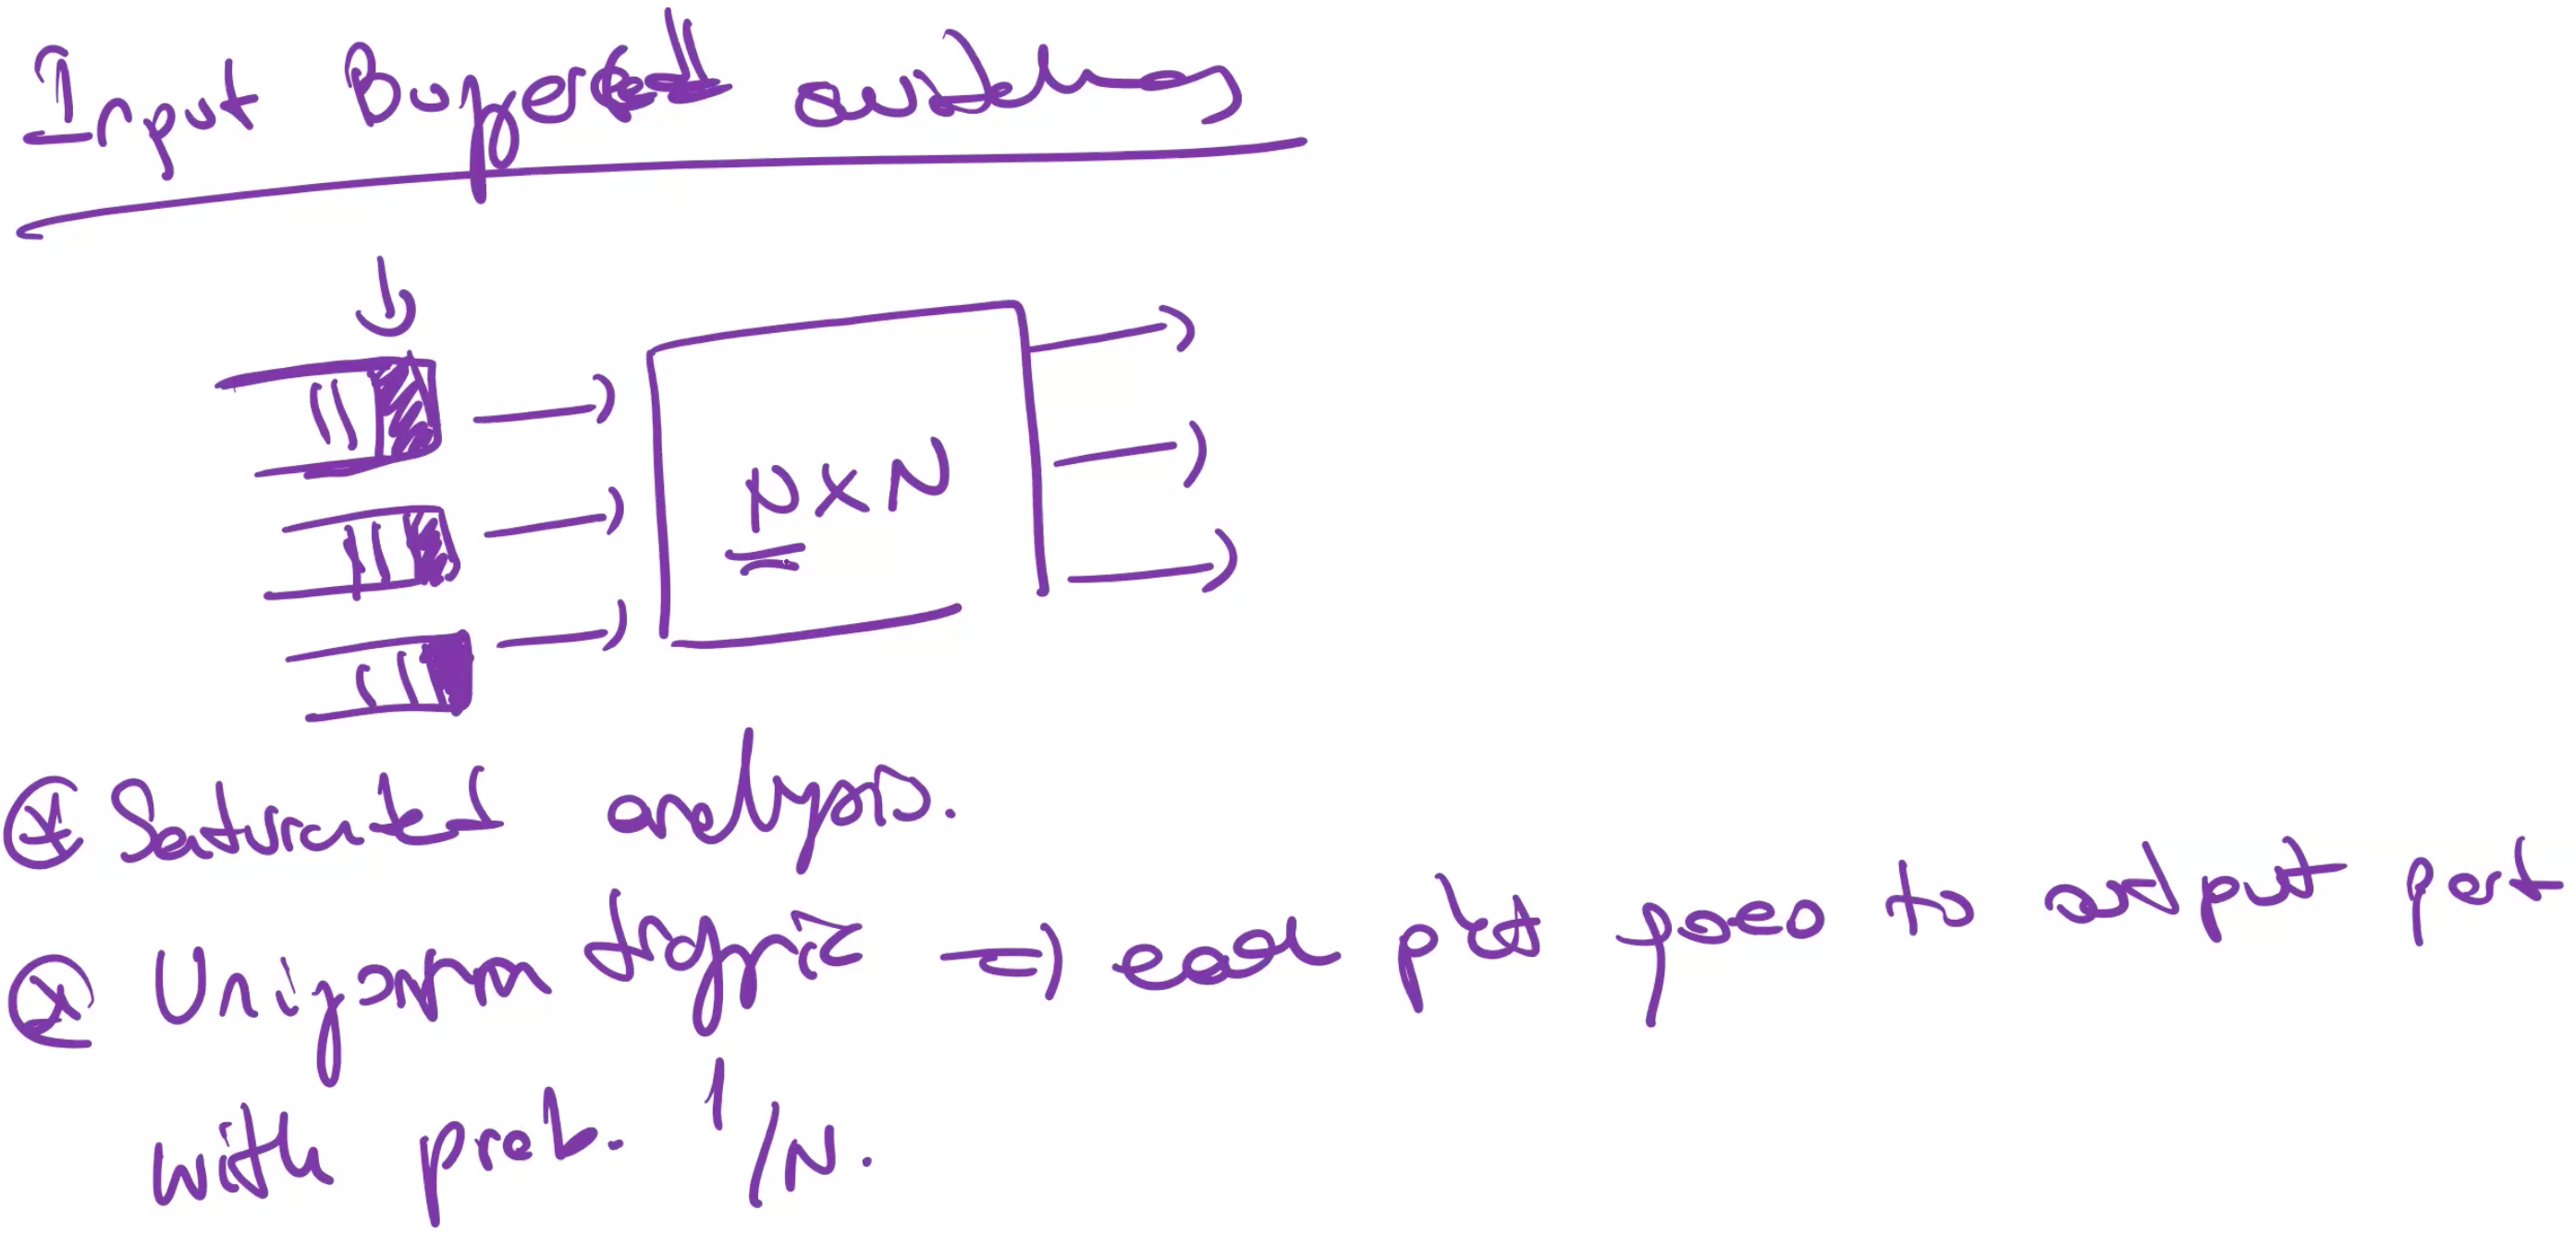 Input Buffered switches
N x N
⊛ Saturated analysis.
⊛ Uniform traffic ⇒ each pkt goes to output port
with prob. 1/N.